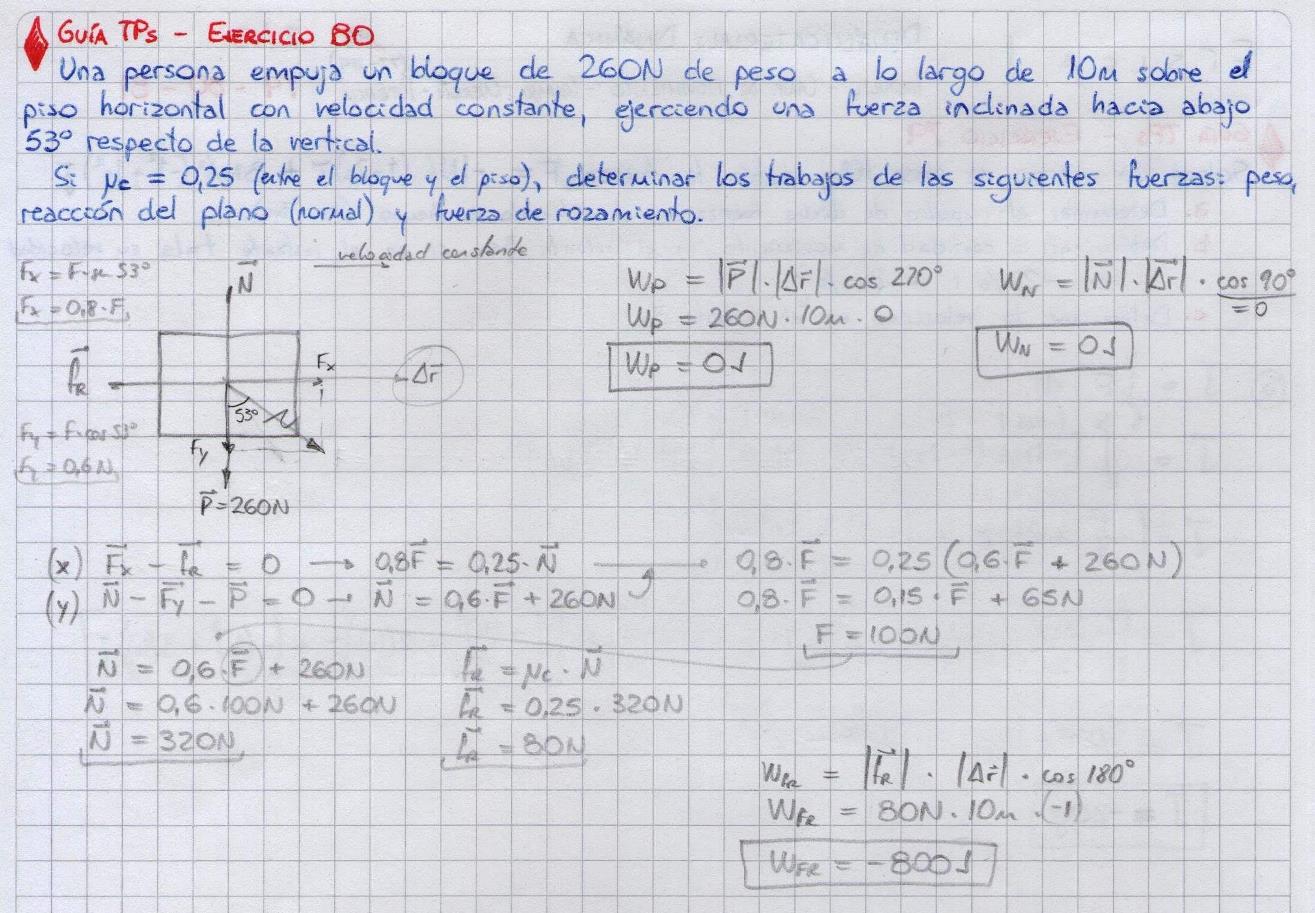 GUÍA TPs - EJERCICIO 80
Una persona empuja un bloque de 260N de peso a lo largo de 10m sobre el
piso horizontal con velocidad constante, ejerciendo una fuerza inclinada hacia abajo
53° respecto de la vertical.
Si μc = 0,25 (entre el bloque y el piso), determinar los trabajos de las siguientes fuerzas: peso,
reacción del plano (normal) y fuerza de rozamiento.
velocidad constante
Fx = F·sen 53°
Fx = 0,8·F
N⃗
f⃗R
Fx
Δr⃗
53°
Fy
Fy = F·cos 53°
Fy = 0,6N
P⃗ = 260N
WP = |P⃗|·|Δr⃗|·cos 270°
WP = 260N·10m·0
WP = 0J
WN = |N⃗|·|Δr⃗|·cos 90°
= 0
WN = 0J
(x) F⃗x - f⃗R = 0 → 0,8F⃗ = 0,25·N⃗ → 0,8·F⃗ = 0,25 (0,6·F⃗ + 260N)
(y) N⃗ - F⃗y - P⃗ = 0 → N⃗ = 0,6·F⃗ + 260N
0,8·F⃗ = 0,15·F⃗ + 65N
F = 100N
N⃗ = 0,6·F⃗ + 260N
N⃗ = 0,6·100N + 260N
N⃗ = 320N
f⃗R = μc·N⃗
f⃗R = 0,25·320N
f⃗R = 80N
WfR = |f⃗R|·|Δr⃗|·cos 180°
WFR = 80N·10m·(-1)
WFR = -800J